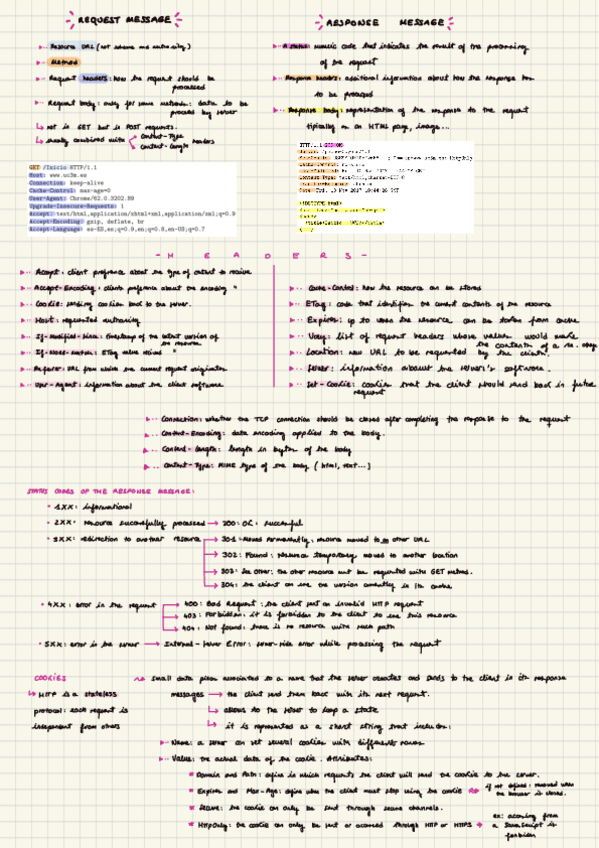 REQUEST MESSAGE
Resource URL (not scheme and authority)
Method
Request headers: how the request should be
processed
Request body: only for some methods: data to be
process by server
not in GET but in POST requests.
usually combined with Content-Type
Content-Length headers
GET /Inicio HTTP/1.1
Host: www.ucm.es
Connection: keep-alive
Cache-Control: max-age=0
User-Agent: Chrome/62.0.3202.89
Upgrade-Insecure-Requests: 1
Accept: text/html,application/xhtml+xml,application/xml;q=0.9
Accept-Encoding: gzip, deflate, br
Accept-Language: es-ES,es;q=0.9,en;q=0.8,en-US;q=0.7
RESPONSE MESSAGE
A status numeric code that indicates the result of the processing
of the request
Response headers: additional information about how the response has
to be processed
Response body: representation of the response to the request
tipically in an HTML page, image...
- HEADERS -
Accept: client preference about the type of content to receive
Accept-Encoding: clients preference about the encoding "
Cookie: sending cookies back to the server.
Host: requested authority
If-Modified-Since: timestamp of the latest version of
the resource
If-None-Match: ETag value "
Referer: URL from which the current request originates
User-Agent: information about the client software
Cache-Control: how the resource can be stored
ETag: code that identifies the current contents of the resource
Expires: up to when the resource can be stored from cache
Vary: list of request headers whose values would make
the contents of a re. vary
Location: new URL to be requested by the client.
Server: information about the server's software.
Set-Cookie: cookie that the client should send back in future
request
Connection: whether the TCP connection should be closed after completing the response to the request
Content-Encoding: data encoding applied to the body.
Content-Length: length in bytes of the body
Content-Type: MIME type of the body (html, text...)
STATUS CODES OF THE RESPONSE MESSAGE:
1XX: informational
2XX: resource successfully processed → 200: OK: successful
3XX: redirection to another resource
301: Moved permanently: resource moved to an other URL
302: Found: resource temporary moved to another location
303: See Other: the other resource must be requested with GET method.
304: the client can use the version currently in its cache
4XX: error in the request
400: Bad Request: the client sent an invalid HTTP request
403: Forbidden: it is forbidden to the client to use this resource
404: Not found: there is no resource with such path
5XX: error in the server → Internal-Server Error: server-side error while processing the request
COOKIES
HTTP is a stateless
protocol: each request is
independent from others
small data piece associated to a name that the server creates and sends to the client in its response
messages → the client send them back with its next request.
allows to the server to keep a state
it is represented as a short string that includes:
Name: a server can set several cookies with differents names
Value: the actual data of the cookie. Attributes:
Domain and Path: define in which requests the client will send the cookie to the server.
Expires and Max-Age: define when the client must stop using the cookie
if not defined: removed when
the browser is closed.
Secure: the cookie can only be sent through secure channels.
HttpOnly: the cookie can only be sent or accessed through HTTP or HTTPS →
ex: accessing from
a JavaScript is
forbidden